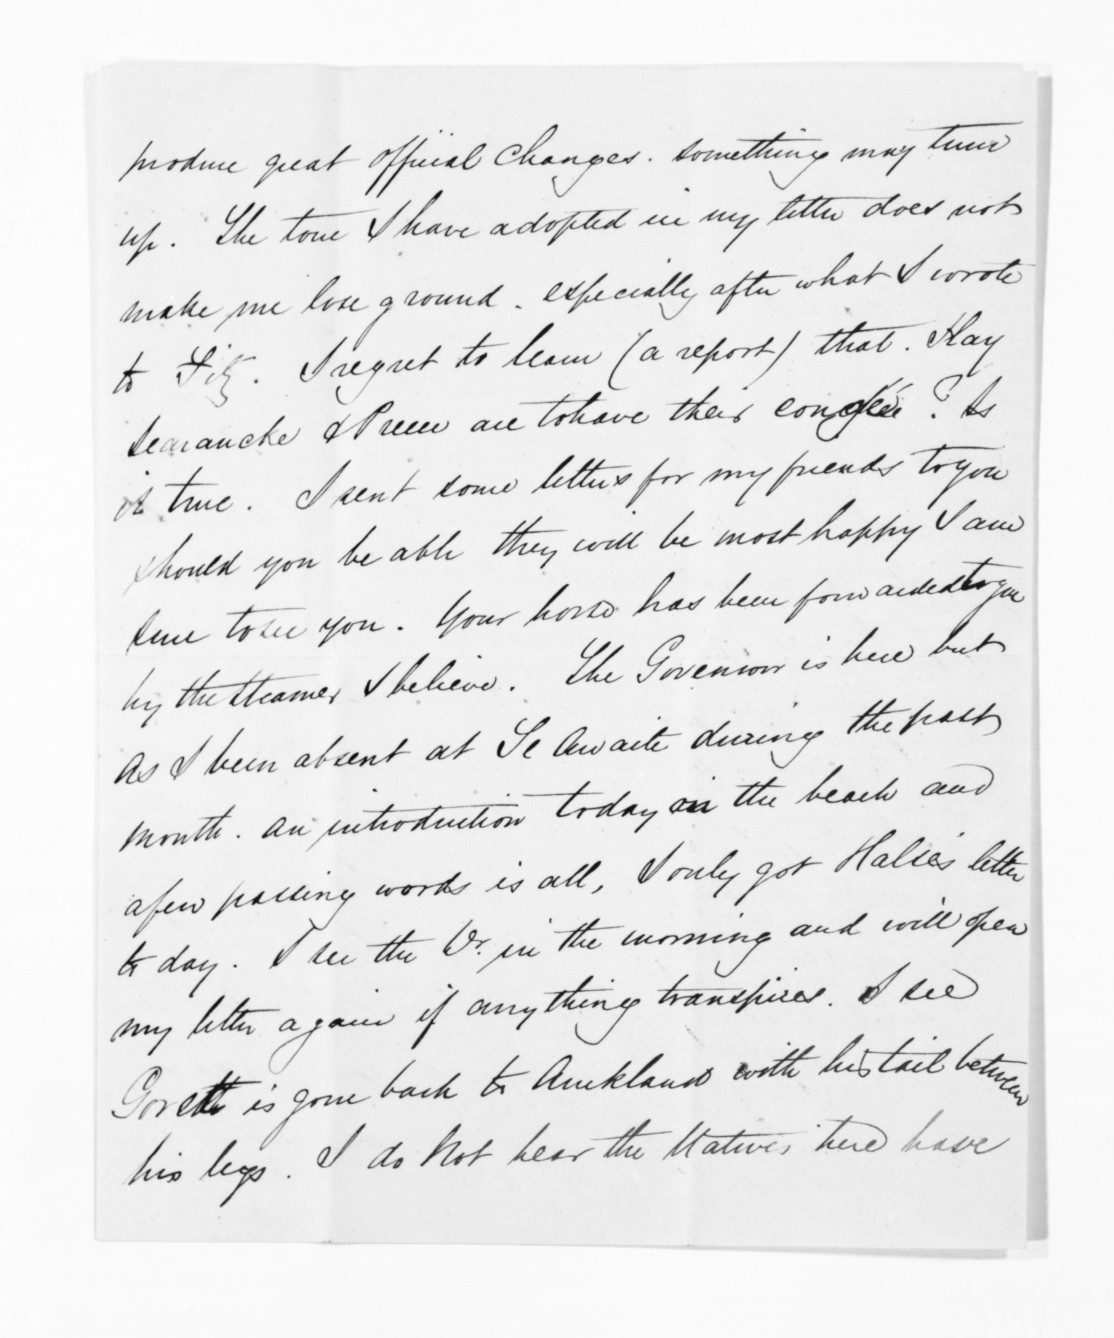 produce great official changes. something may turn
up. The tone I have adopted in my letter does not
make me lose ground. especially after what I wrote
to Fitz. I regret to learn (a report) that. Hay
Searancke & Preece are to have their congée? Is
it true. I sent some letters for my friends to you
should you be able they will be most happy I am
sure to see you. Your horse has been forwarded to you
by the steamer I believe. The Govenour is here but
as I been absent at Te Awaite during the past
month. an introduction today on the beach and
a few passing words is all, I only got Halse's letter
to day. I see the Dr. in the morning and will open
my letter again if anything transpires. I see
is gone back to Auckland with his tail between
his legs. I do not hear the Natives here have